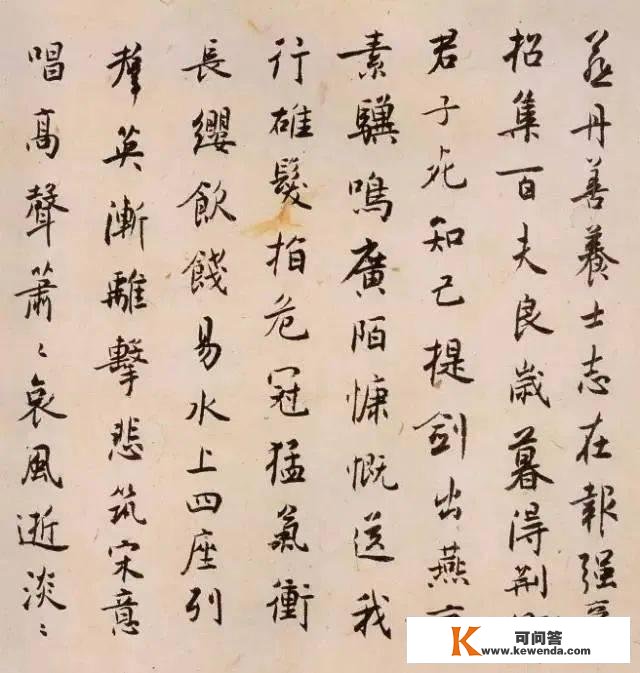 燕丹善養士志在報强
招集百夫良歲暮得荆
君子死知己提劍出燕
素驥鳴廣陌慷慨送我
行雄髮指危冠猛氣衝
長纓飲餞易水上四座列
羣英漸離擊悲筑宋意
唱高聲蕭〻哀風逝淡〻
K 可问答
www.kewenda.com